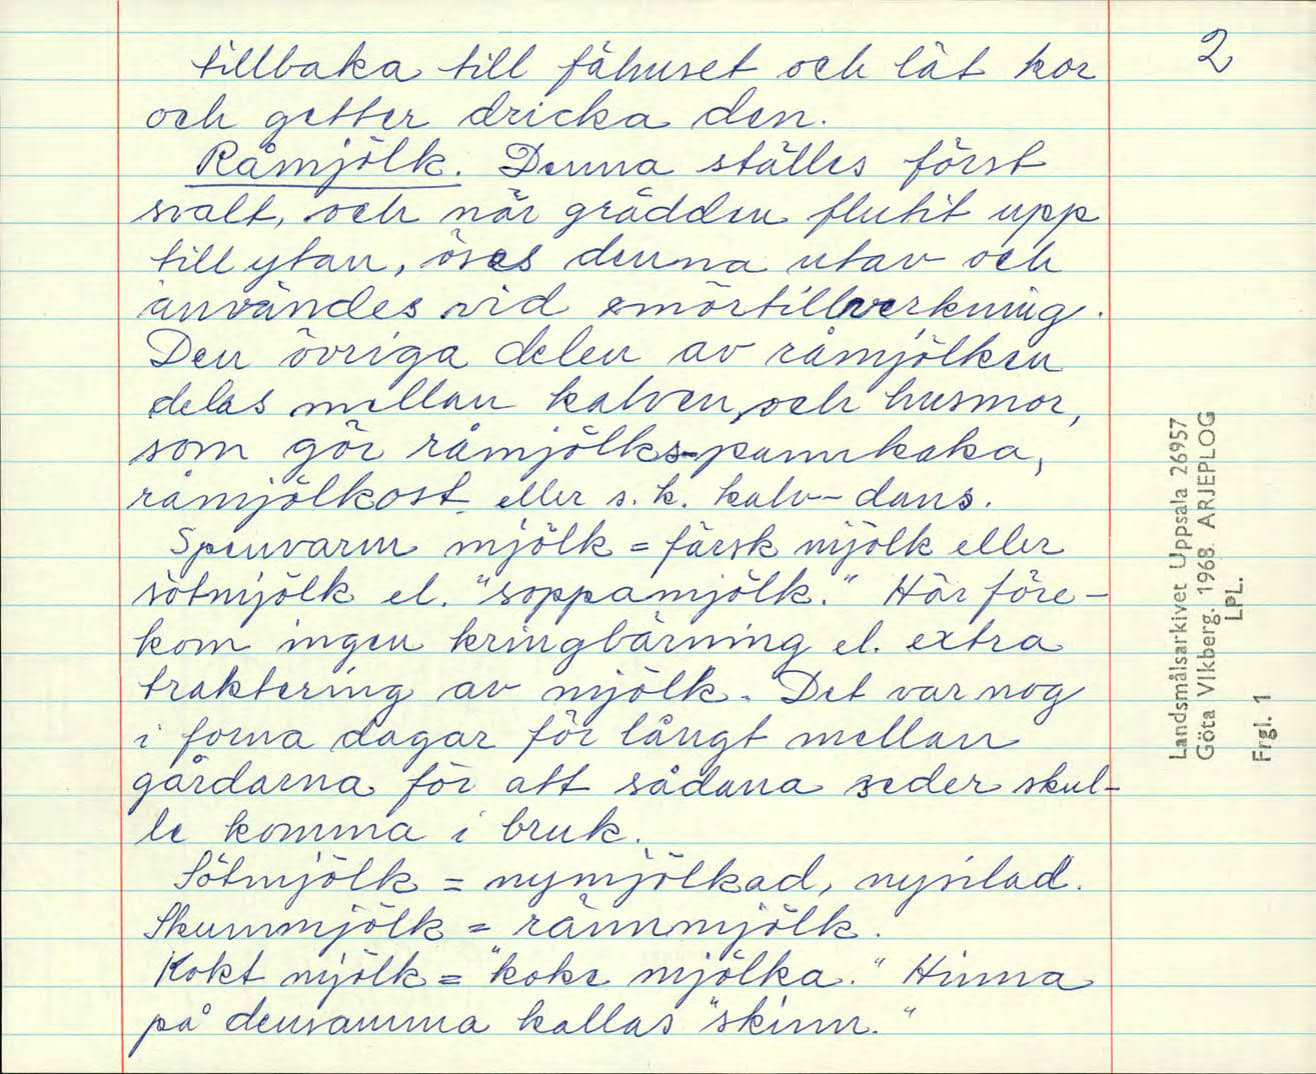 2
tillbaka till fähuset och lät kor
och getter dricka den.
Råmjölk. Denna ställes först
svalt, och när grädden flutit upp
till ytan, öses denna utav och
användes vid smörtillverkning.
Den övriga delen av råmjölken
delas mellan kalven, och husmor,
som gör råmjölks-pannkaka,
råmjölkost eller s.k. kalv-dans.
Spenvarm mjölk = färsk mjölk eller
sötmjölk el. "soppamjölk." Här före-
kom ingen kringbärning el. extra
traktering av mjölk. Det var nog
i forna dagar för långt mellan
gårdarna för att sådana seder skul-
le komma i bruk.
Sötmjölk = nymjölkad, nysilad.
Skummjölk = rännmjölk.
Kokt mjölk = "koke mjölka." Hinna
på densamma kallas "skinn."
Landsmålsarkivet Uppsala 26957
Göta Vikberg. 1968. ARJEPLOG
LPL.
Frgl. 1